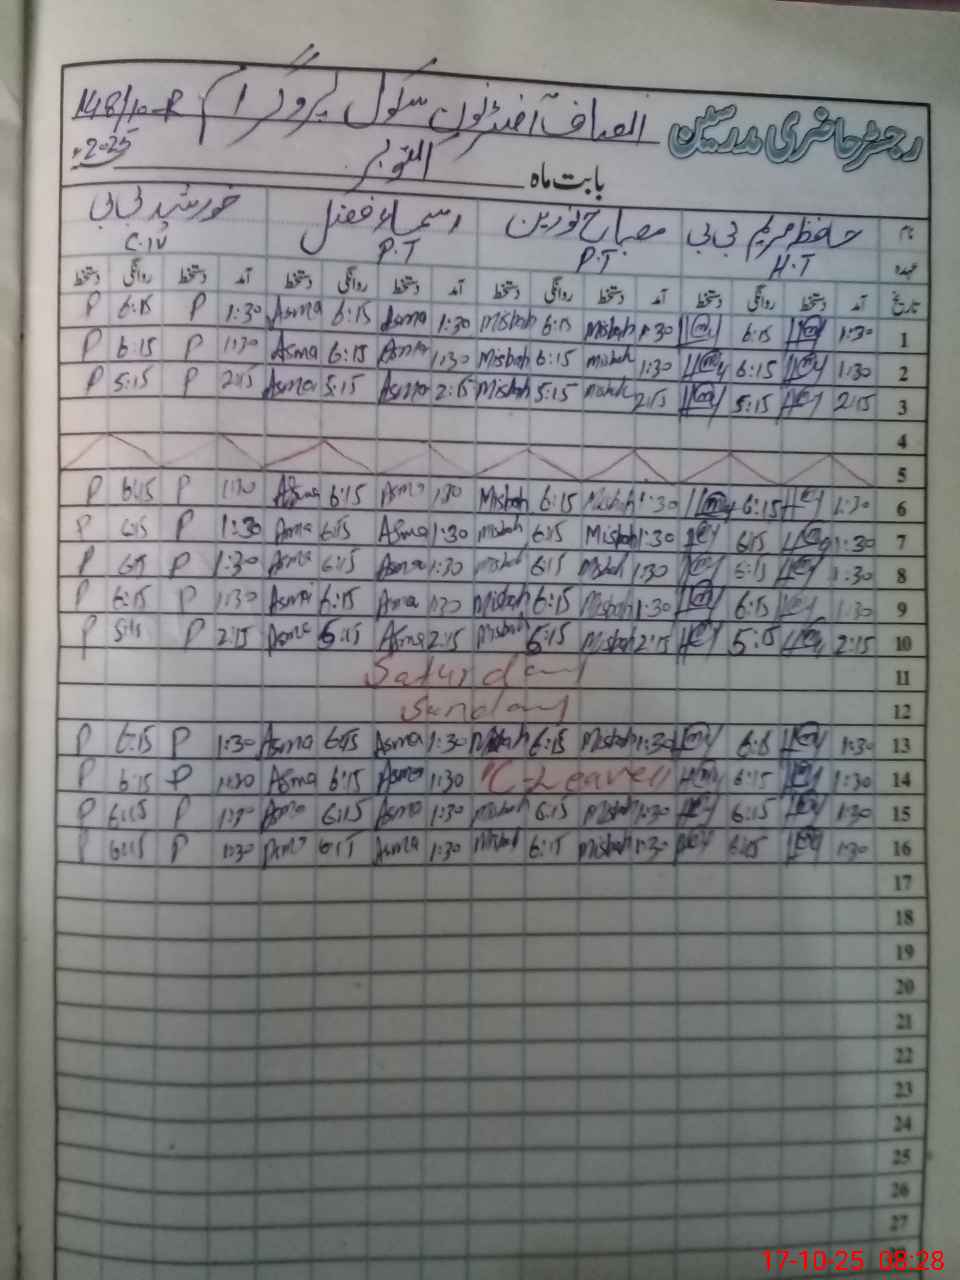 رجسٹر حاضری مدرسین انصاف آفٹر نون سکول پروگرام 148/10-R
بابت ماہ اکتوبر 2025ء
نام حافظ مریم بی بی مصباح نورین اسماء فضل خورشید بی بی
عہدہ H.T P.T P.T C.IV
تاریخ آمد دستخط روانگی دستخط آمد دستخط روانگی دستخط آمد دستخط روانگی دستخط آمد دستخط روانگی دستخط
P 6:15 P 1:30 Asma 6:15 Asma 1:30 Misbah 6:15 Misbah 1:30 6:15 1:30 1
P 6:15 P 1:30 Asma 6:15 Asma 1:30 Misbah 6:15 Misbah 1:30 6:15 1:30 2
P 5:15 P 2:15 Asma 5:15 Asma 2:15 Misbah 5:15 Misbah 2:15 5:15 2:15 3
4
5
P 6:15 P 1:30 Asma 6:15 Asma 1:30 Misbah 6:15 Misbah 1:30 6:15 1:30 6
P 6:15 P 1:30 Asma 6:15 Asma 1:30 Misbah 6:15 Misbah 1:30 6:15 1:30 7
P 6:15 P 1:30 Asma 6:15 Asma 1:30 Misbah 6:15 Misbah 1:30 6:15 1:30 8
P 6:15 P 1:30 Asma 6:15 Asma 1:30 Misbah 6:15 Misbah 1:30 6:15 1:30 9
P 5:15 P 2:15 Asma 5:15 Asma 2:15 Misbah 5:15 Misbah 2:15 5:15 2:15 10
Saturday 11
Sunday 12
P 6:15 P 1:30 Asma 6:15 Asma 1:30 Misbah 6:15 Misbah 1:30 1:30 13
P 6:15 P 1:30 Asma 6:15 Asma 1:30 "C-Leave" 6:15 1:30 14
P 6:15 P 1:30 Asma 6:15 Asma 1:30 Misbah 6:15 Misbah 1:30 6:15 1:30 15
P 6:15 P 1:30 Asma 6:15 Asma 1:30 Misbah 6:15 Misbah 1:30 6:15 1:30 16
17
18
19
20
21
22
23
24
25
26
27
17-10-25 08:28